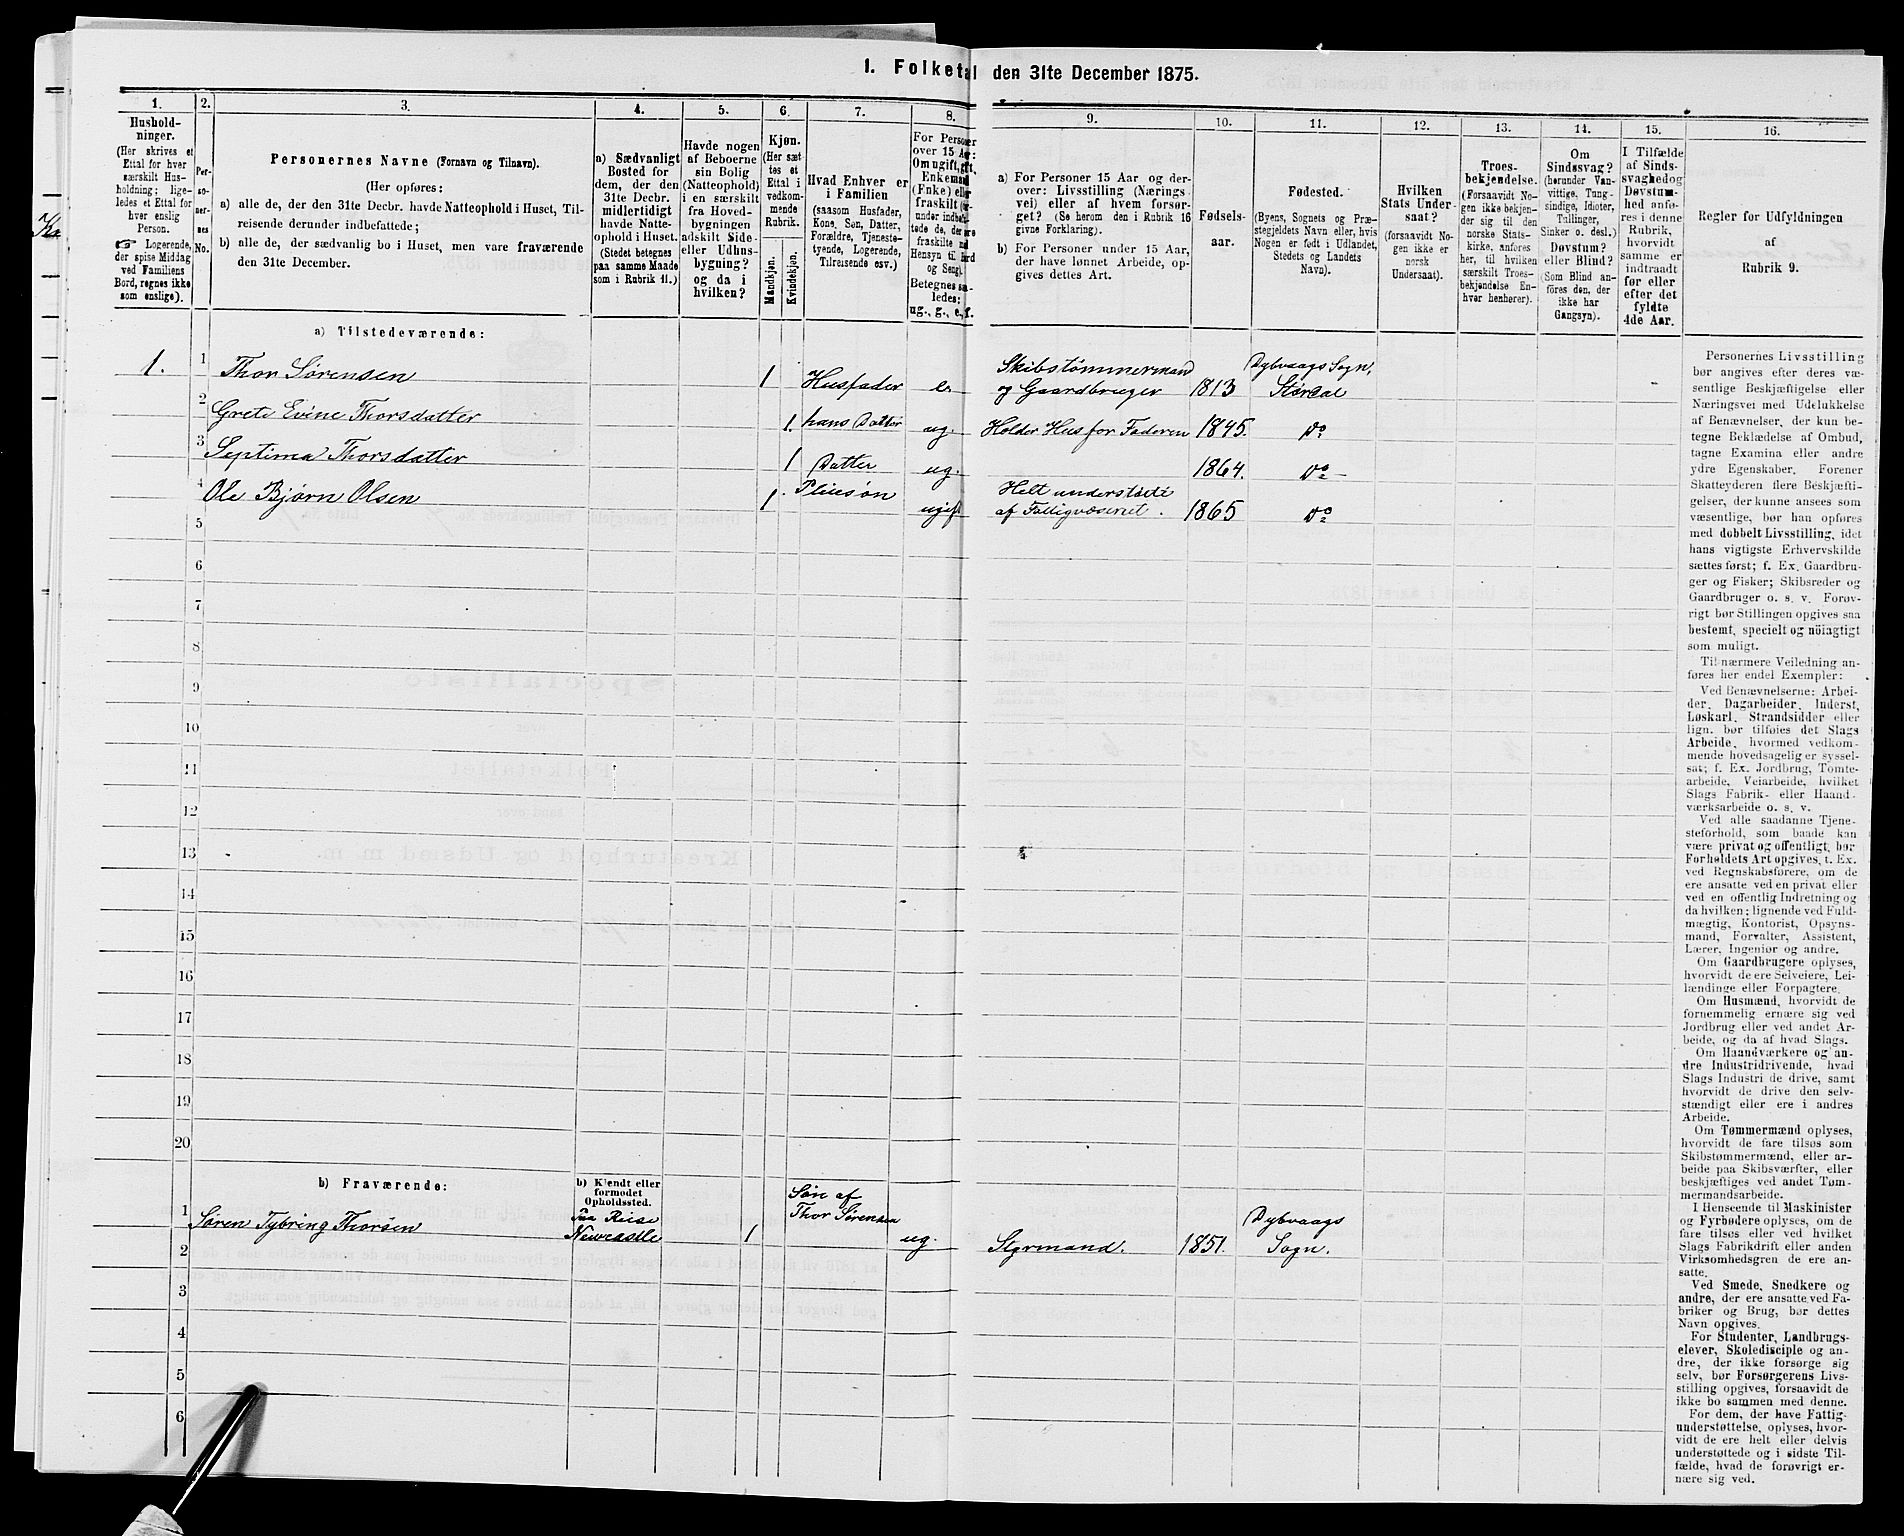 1. Folketal den 31te December 1875.
1.
2.
3.
4.
5.
6.
7.
8.
9.
10.
11.
12.
13.
14.
15.
16.
Hushold-
ninger.
(Her skrives et
Ettal for hver
særskilt Hus-
holdning; lige-
ledes et Ettal for
hver enslig
Person.
☞ Logerende,
der spise Middag
ved Familiens
Bord, regnes ikke
som enslige).
Per-
so-
ner-
nes
No.
Personernes Navne (Fornavn og Tilnavn).
(Her opføres:
a) alle de, der den 31te Decbr. havde Natteophold i Huset, Til-
reisende derunder indbefattede;
b) alle de, der sædvanlig bo i Huset, men vare fraværende
den 31te December.
a) Sædvanligt
Bosted for
dem, der den
31te Decbr.
midlertidigt
havde Natte-
ophold i Huset.
(Stedet betegnes
paa samme Maade
som i Rubrik 11.)
Havde nogen
af Beboerne
sin Bolig
(Natteophold)
i en særskilt
fra Hoved-
bygningen
adskilt Side-
eller Udhus-
bygning?
og da i
hvilken?
Kjøn.
(Her sæt-
tes et
Ettal i
vedkom-
mende
Rubrik.
Mandkjøn.
Kvindekjøn.
Hvad Enhver er
i Familien
(saasom Husfader,
Kone, Søn, Datter,
Forældre, Tjeneste-
tyende, Logerende,
Tilreisende osv.).
For Personer
over 15 Aar:
Om ugift, gift,
Enkemand
(Enke) eller
fraskilt
Betegnes saa-
ledes:
ug., g., e., f.
a) For Personer 15 Aar og der-
over: Livsstilling (Nærings
vei) eller af hvem forsør-
get? (Se herom den i Rubrik 16
givne Forklaring).
b) For Personer under 15 Aar,
der have lønnet Arbeide, op-
gives dettes Art.
Fødsels-
aar.
Fødested.
(Byens, Sognets og Præ-
stegjeldets Navn eller, hvis
Nogen er født i Udlandet,
Stedets og Landets
Navn).
Hvilken
Stats Under-
saat?
(forsaavidt No-
gen ikke er
norsk
Undersaat).
Troes-
bekjendelse.
(Forsaavidt No-
gen ikke bekjen-
der sig til den
norske Stats-
kirke, anføres
her, til hvilken
særskilt Troes-
bekjendelse En-
hver henhører).
Om
Sindssvag?
(herunder Van-
vittige, Tung-
sindige, Idioter,
Tullinger,
Sinker o. desl.)
Døvstum?
eller Blind?
(Som Blind an-
føres den, der
ikke har
Gangsyn).
I Tilfælde
af Sinds-
svaghedog
Døvstum-
hed anfø-
res i denne
Rubrik,
hvorvidt
samme er
indtraadt
før eller
efter det
fyldte
4de Aar.
Regler for Udfyldningen
af
Rubrik 9.
a) Tilstedeværende:
1. 1 Thor Sørensen 1 Husfader e. Skibstømmermand og Gaardbruger 1813 Dybvaags Sogn, Størdal
2 Grete Evine Thorsdatter 1. hans Datter ug. Holder Hus for Faderen 1845. Do
3 Septima Thorsdatter 1 Datter ug. 1864. Do
4 Ole Bjørn Olsen 1 Pleiesøn ugift Helt understøtet af Fattigvæsenet. 1865 Do
5
6
7
8
9
10
11
12
13
14
15
16
17
18
19
20
b) Fraværende:
b) Kjendt eller
formodet
Opholdssted.
1 Søren Tybring Thorsen Paa Reise Newcastle 1 Søn af Thor Sørensen ug. Styrmand. 1851. Dybvaags Sogn.
2
3
4
5
6
Personernes Livsstilling
bør angives efter deres væ-
sentlige Beskjæftigelse eller
Næringsvei med Udelukkelse
af Benævnelser, der kun be-
tegne Beklædelse af Ombud,
tagne Examina eller andre
ydre Egenskaber. Forener
Skatteyderen flere Beskjæfti-
gelser, der kunne ansees som
væsentlige, bør han opføres
med dobbelt Livsstilling, idet
hans vigtigste Erhvervskilde
sættes først; f. Ex. Gaardbru-
ger og Fisker; Skibsreder og
Gaardbruger o. s. v. Forøv-
rigt bør Stillingen opgives saa
bestemt, specielt og nöiagtigt
som muligt.
Til nærmere Veiledning an-
føres her endel Exempler:
Ved Benævnelserne: Arbei-
der, Dagarbeider, Inderst,
Løskarl, Strandsidder eller
lign. bør tilføies det Slags
Arbeide, hvormed vedkom-
mende hovedsagelig er syssel-
sat; f. Ex. Jordbrug, Tomte-
arbeide, Veiarbeide, hvilket
Slags Fabrik- eller Haand-
værksarbeide o. s. v.
Ved alle saadanne Tjene-
steforhold, som baade kan
være privat og offentligt, bør
Forholdets Art opgives, t. Ex.
ved Regnskabsførere, om de
ere ansatte ved en privat eller
ved en offentlig Indretning og
da hvilken; lignende ved Fuld-
mægtig, Kontorist, Opsyns-
mand, Forvalter, Assistent,
Lærer, Ingeniør og andre.
Om Gaardbrugere oplyses,
hvorvidt de ere Selveiere, Lei-
lændinge eller Forpagtere.
Om Husmænd, hvorvidt de
fornemmelig ernære sig ved
Jordbrug eller ved andet Ar-
beide, og da af hvad Slags.
Om Haandværkere og an-
dre Industridrivende, hvad
Slags Industri de drive, samt
hvorvidt de drive den selv-
stændigt eller ere i andres
Arbeide.
Om Tømmermænd oplyses,
hvorvidt de fare tilsøs som
Skibstømmermænd, eller ar-
beide paa Skibsværfter, eller
beskjæftiges ved andet Tøm-
mermandsarbeide.
I Henseende til Maskinister
og Fyrbødere oplyses, om de
fare tilsøs eller ved hvilket
Slags Fabrikdrift eller anden
Virksomhedsgren de ere an-
satte.
Ved Smede, Snedkere og
andre, der ere ansatte ved Fa-
briker og Brug, bør dettes
Navn opgives.
For Studenter, Landbrugs-
elever, Skoledisciple og an-
dre, der ikke forsørge sig
selv, bør Forsørgerens Livs-
stilling opgives, forsaavidt de
ikke bo sammen med denne.
For dem, der have Fattig-
understøttelse, oplyses, hvor-
vidt de ere helt eller delvis
understøttede og i sidste Til-
fælde, hvad de forøvrigt er-
nære sig ved.